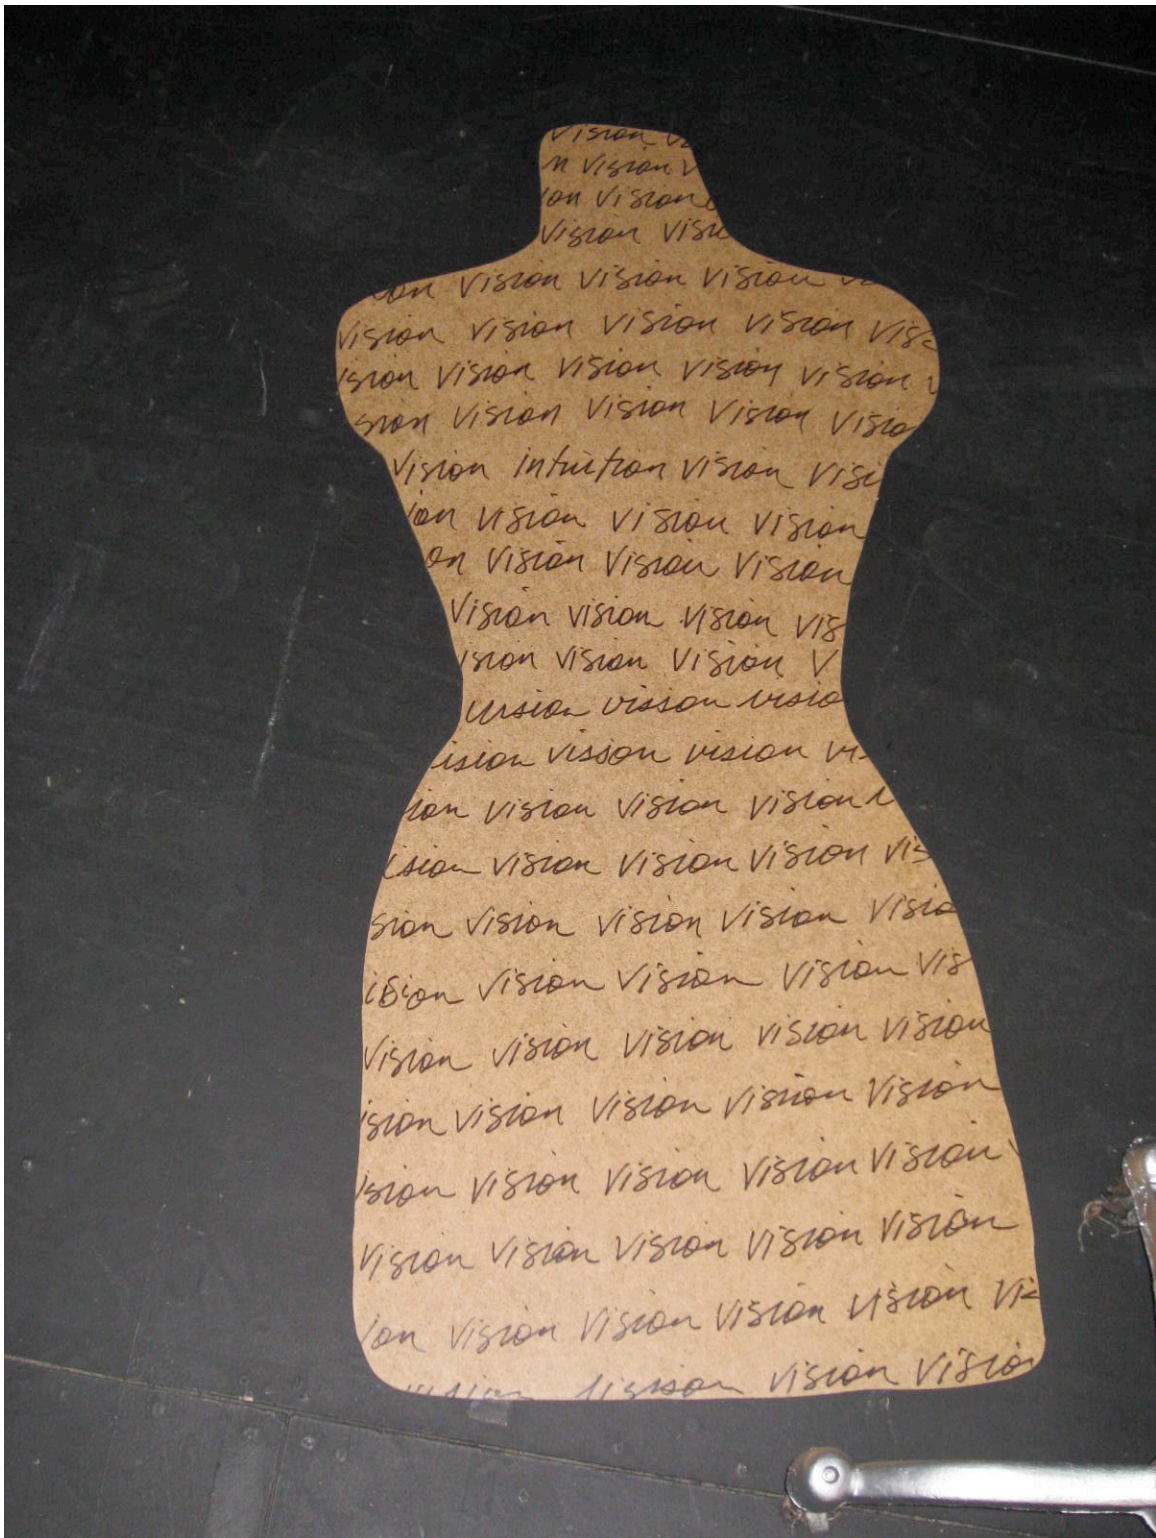 Vision Vi
n Vision V
ion Vision
Vision Visi
ion Vision Vision Vision Vi
Vision Vision Vision Vision Visi
ision Vision Vision Vision Vision V
sion Vision Vision Vision Visio
Vision intuition Vision Visi
ion Vision Vision Vision
on Vision Vision Vision
Vision Vision Vision Vis
ision Vision Vision V
vision vission visio
ision vission vision vi
ion Vision Vision Vision V
ision Vision Vision Vision Vis
sion Vision Vision Vision Visio
ision Vision Vision Vision Vis
Vision Vision Vision Vision Vision
ision Vision Vision Vision Vision
ision Vision Vision Vision Vision
Vision Vision Vision Vision Vision
ion Vision Vision Vision Vision Vi
Vision Visio